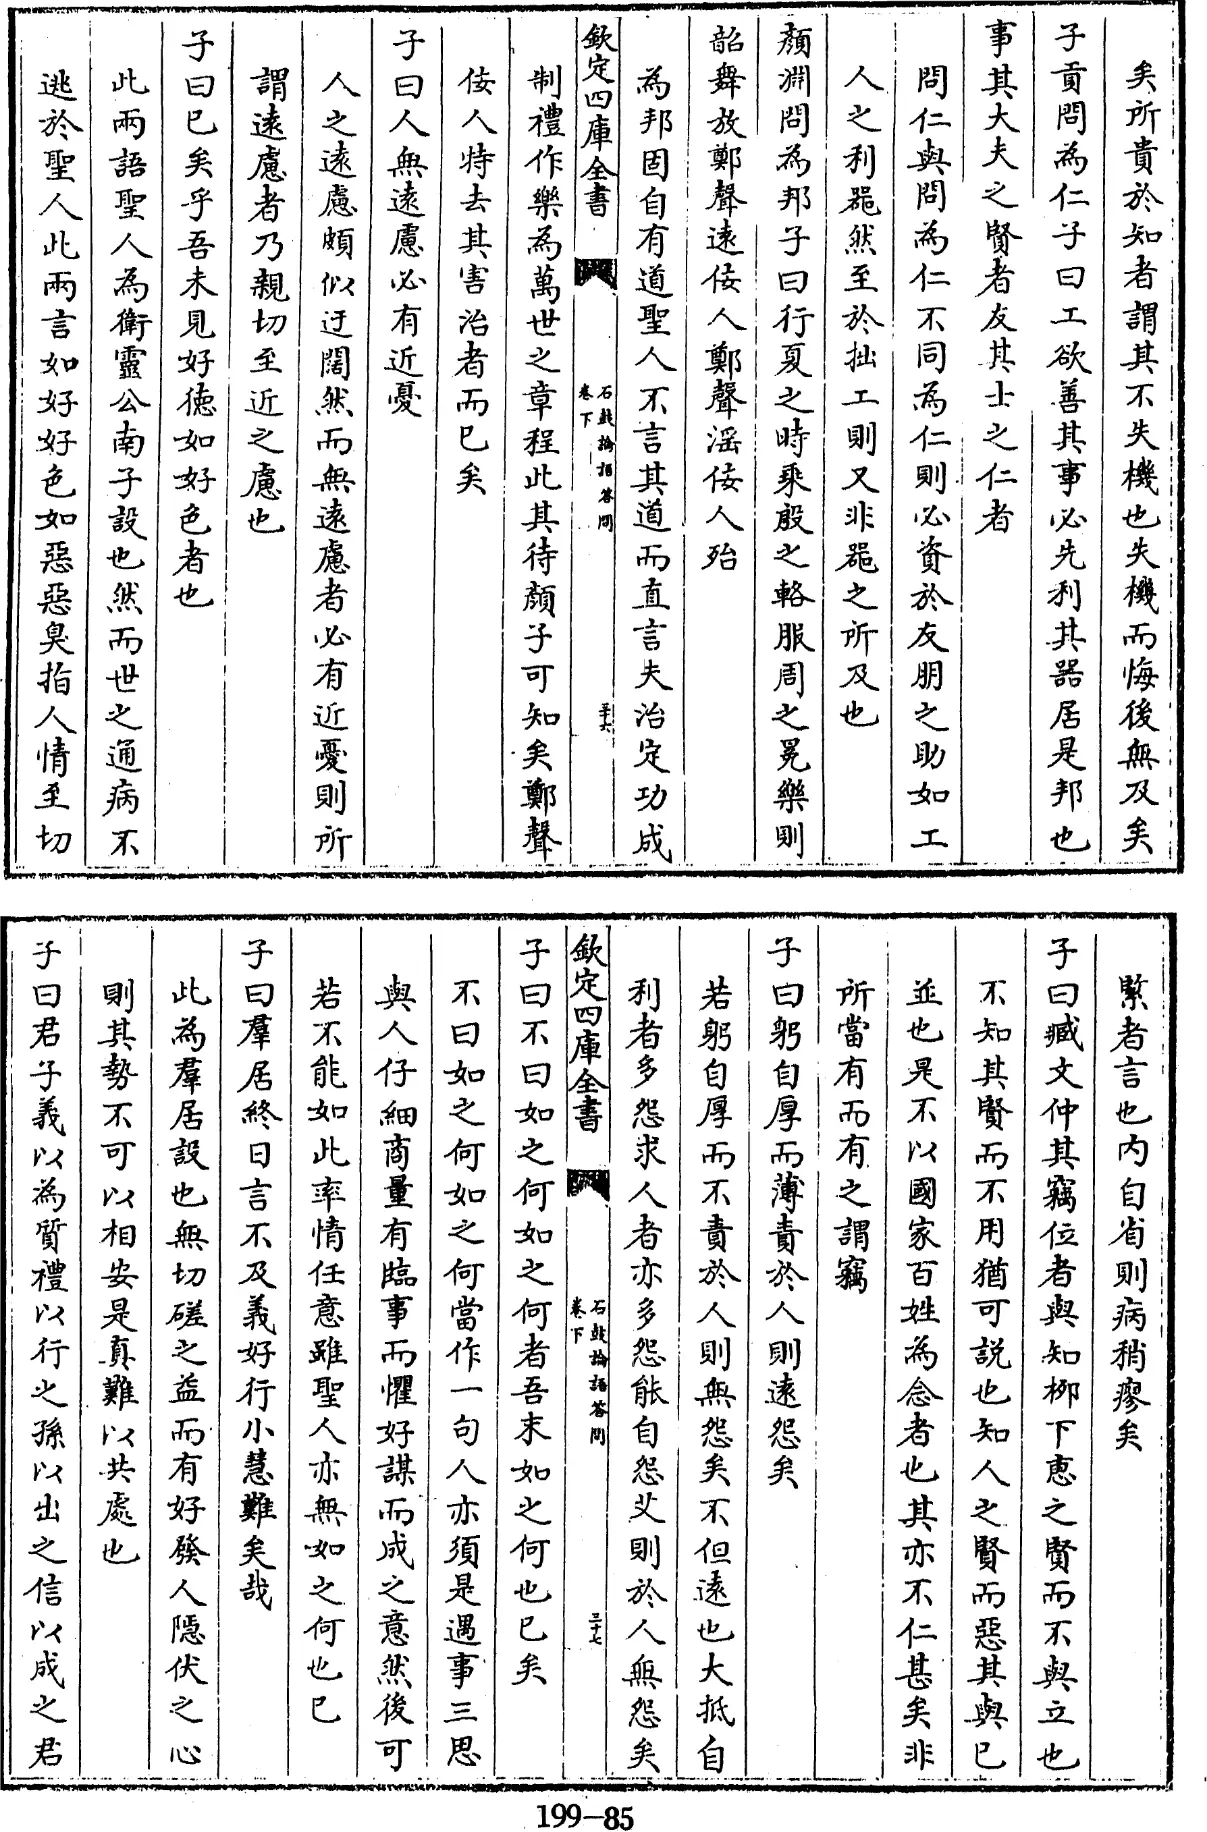 矣所貴於知者謂其不失機也失機而悔後無及矣
子貢問為仁子曰工欲善其事必先利其器居是邦也
事其大夫之賢者友其士之仁者
問仁與問為仁不同為仁則必資於友朋之助如工
人之利器然至於拙工則又非器之所及也
顏淵問為邦子曰行夏之時乘殷之輅服周之冕樂則
韶舞放鄭聲遠佞人鄭聲淫佞人殆
為邦固自有道聖人不言其道而直言夫治定功成
欽定四庫全書
石鼓論語答問
卷下
三十六
制禮作樂為萬世之章程此其待顏子可知矣鄭聲
佞人特去其害治者而已矣
子曰人無遠慮必有近憂
人之遠慮頗似迂闊然而無遠慮者必有近憂則所
謂遠慮者乃親切至近之慮也
子曰已矣乎吾未見好德如好色者也
此兩語聖人為衛靈公南子設也然而世之通病不
逃於聖人此兩言如好好色如惡惡臭指人情至切
緊者言也內自省則病稍瘳矣
子曰臧文仲其竊位者與知柳下惠之賢而不與立也
不知其賢而不用猶可說也知人之賢而惡其與已
並也是不以國家百姓為念者也其亦不仁甚矣非
所當有而有之謂竊
子曰躬自厚而薄責於人則遠怨矣
若躬自厚而不責於人則無怨矣不但遠也大抵自
利者多怨求人者亦多怨能自怨艾則於人無怨矣
欽定四庫全書
石鼓論語答問
卷下
三十七
子曰不曰如之何如之何者吾末如之何也已矣
不曰如之何如之何當作一句人亦須是遇事三思
與人仔細商量有臨事而懼好謀而成之意然後可
若不能如此率情任意雖聖人亦無如之何也已
子曰羣居終日言不及義好行小慧難矣哉
此為羣居設也無切磋之益而有好發人隱伏之心
則其勢不可以相安是真難以共處也
子曰君子義以為質禮以行之孫以出之信以成之君
199-85